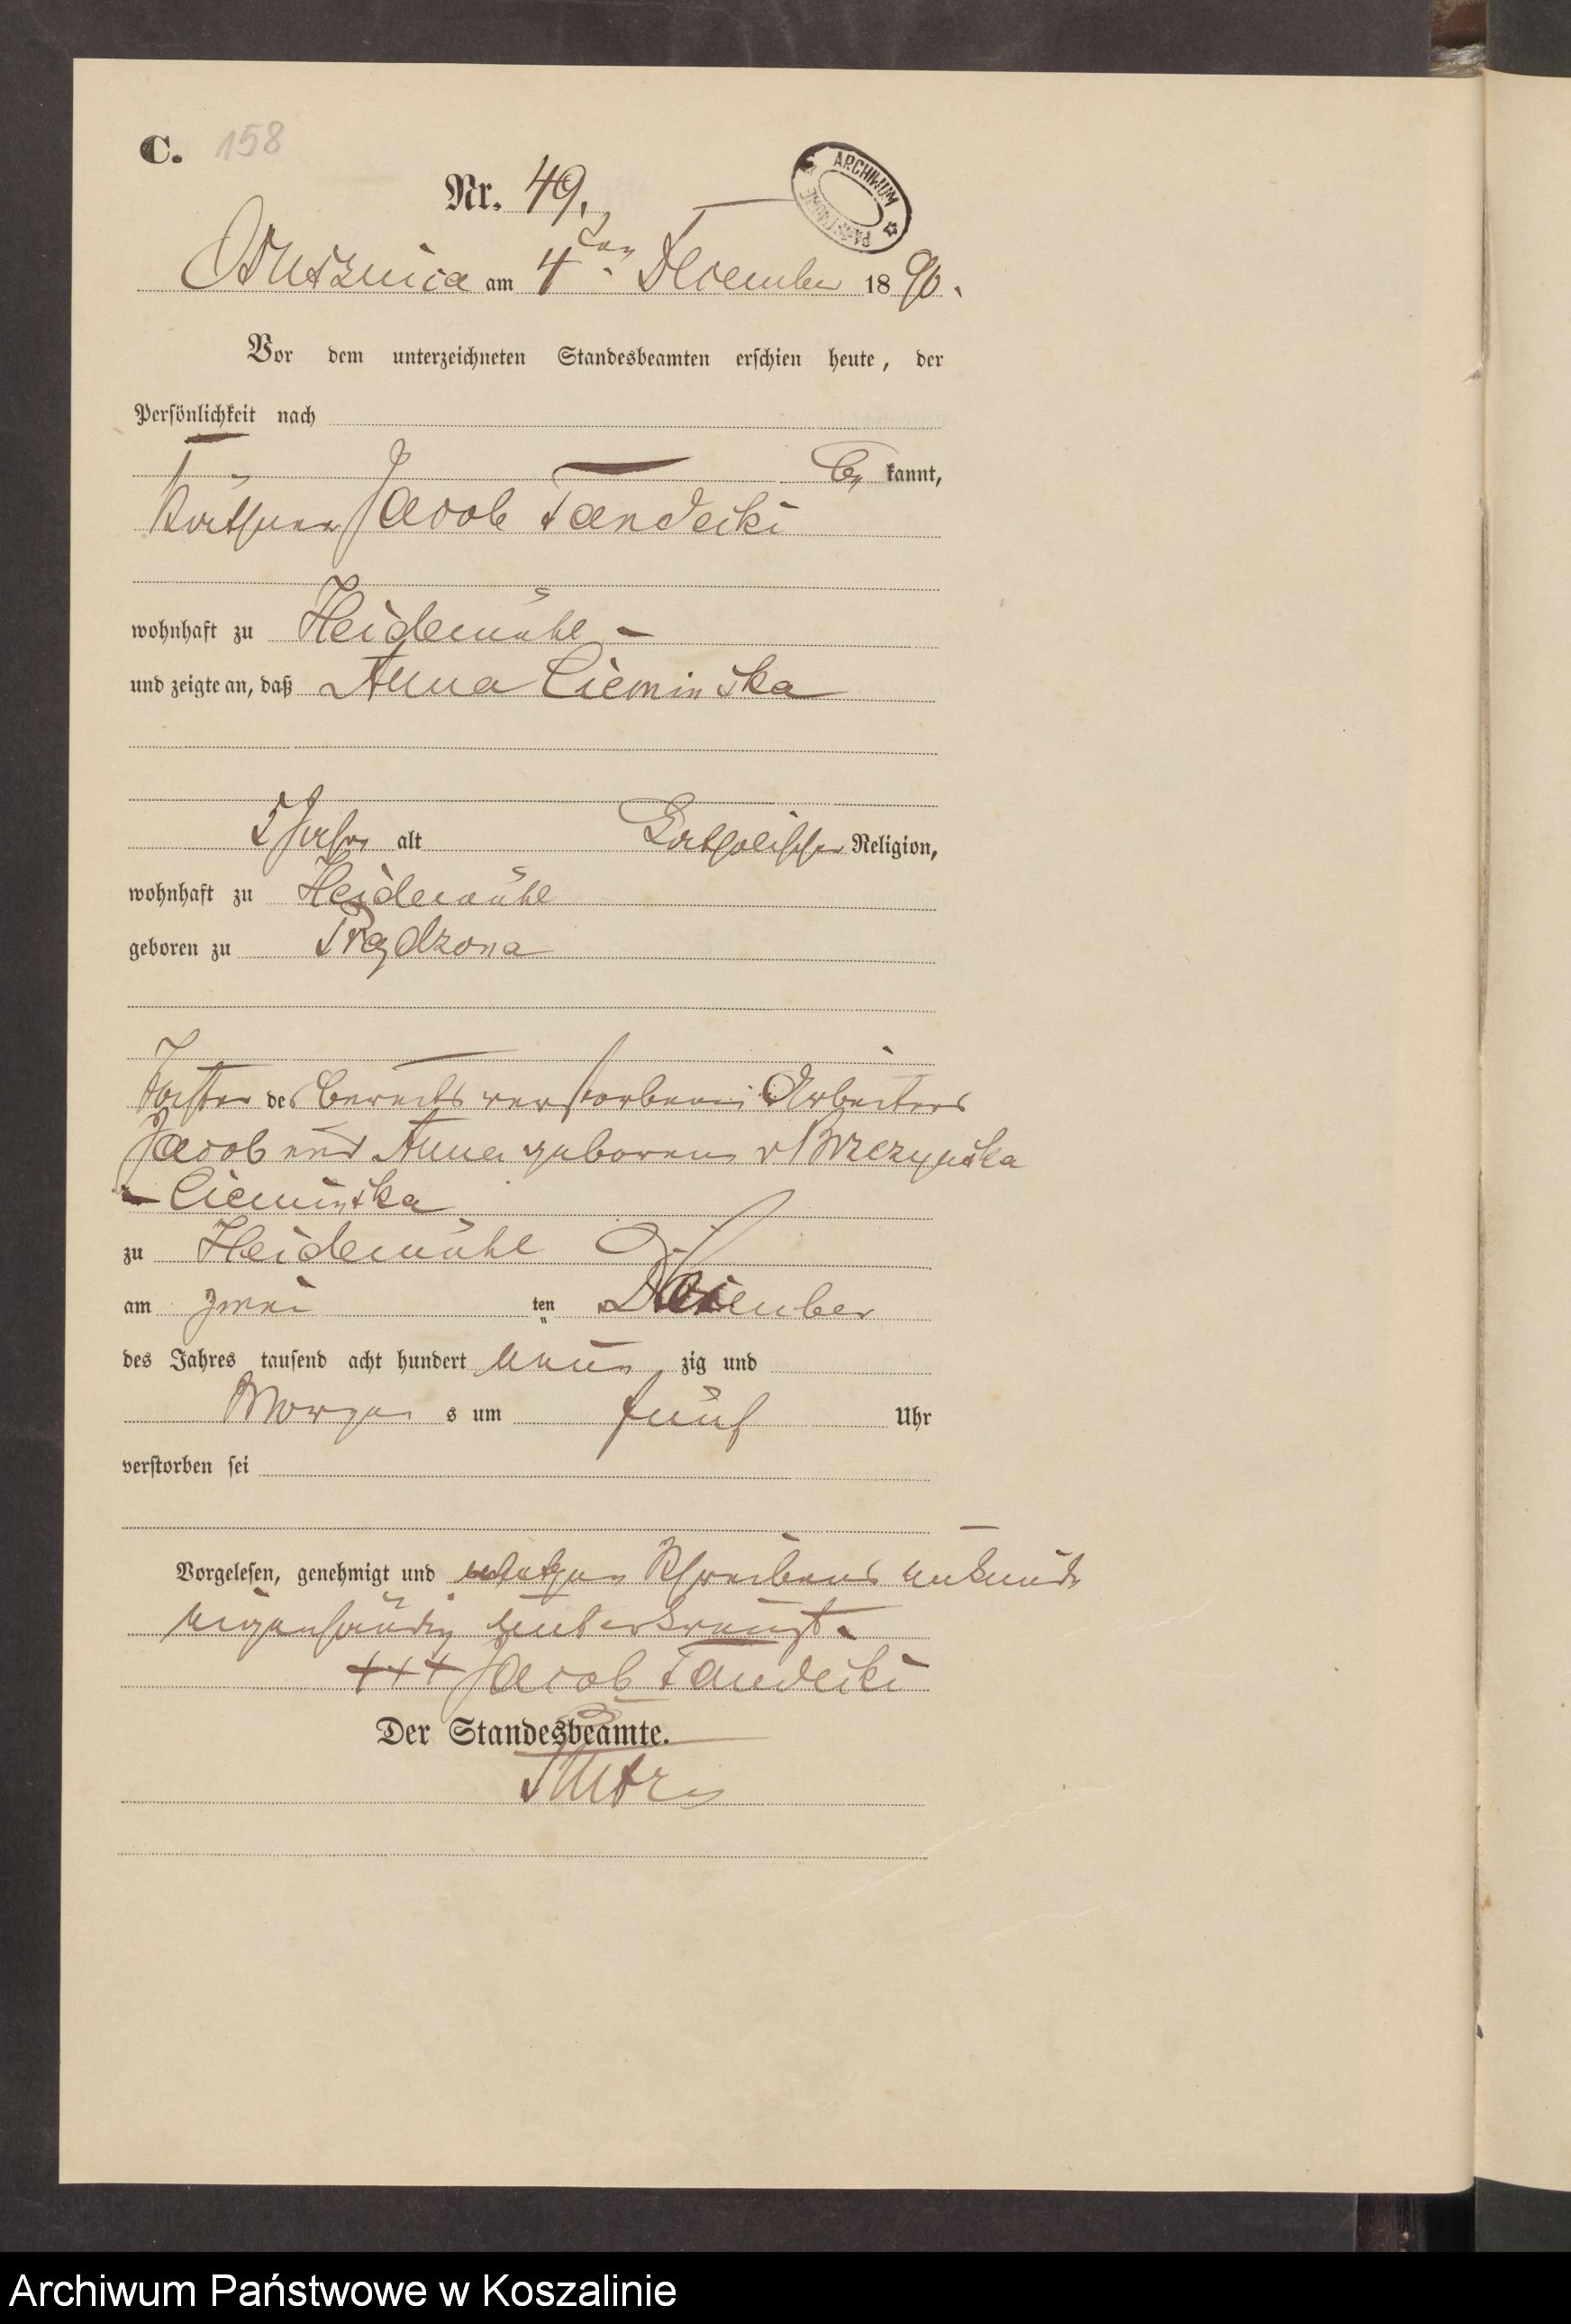 C. 158
Nr. 49.
am 4ten December 1890.
Vor dem unterzeichneten Standesbeamten erschien heute, der
Persönlichkeit nach
be kannt,
Käthner Jacob Tandecki
wohnhaft zu Heidemühl
und zeigte an, daß Anna Cieminska
5 Jahr alt Katholischer Religion,
wohnhaft zu Heidemühl
geboren zu Prądzona
Tochter des bereits verstorbenen Arbeiters
Jacob und Anna geborene
Cieminska
zu Heidemühl
am zwei ten December
des Jahres tausend acht hundert neun zig und
Morgen s um fünf Uhr
verstorben sei
Vorgelesen, genehmigt und wegen Schreibens unkunde
eigenhändig unterkreuzt.
+++ Jacob Tandecki
Der Standesbeamte.
ARCHIWUM PAŃSTWOWE
Archiwum Państwowe w Koszalinie